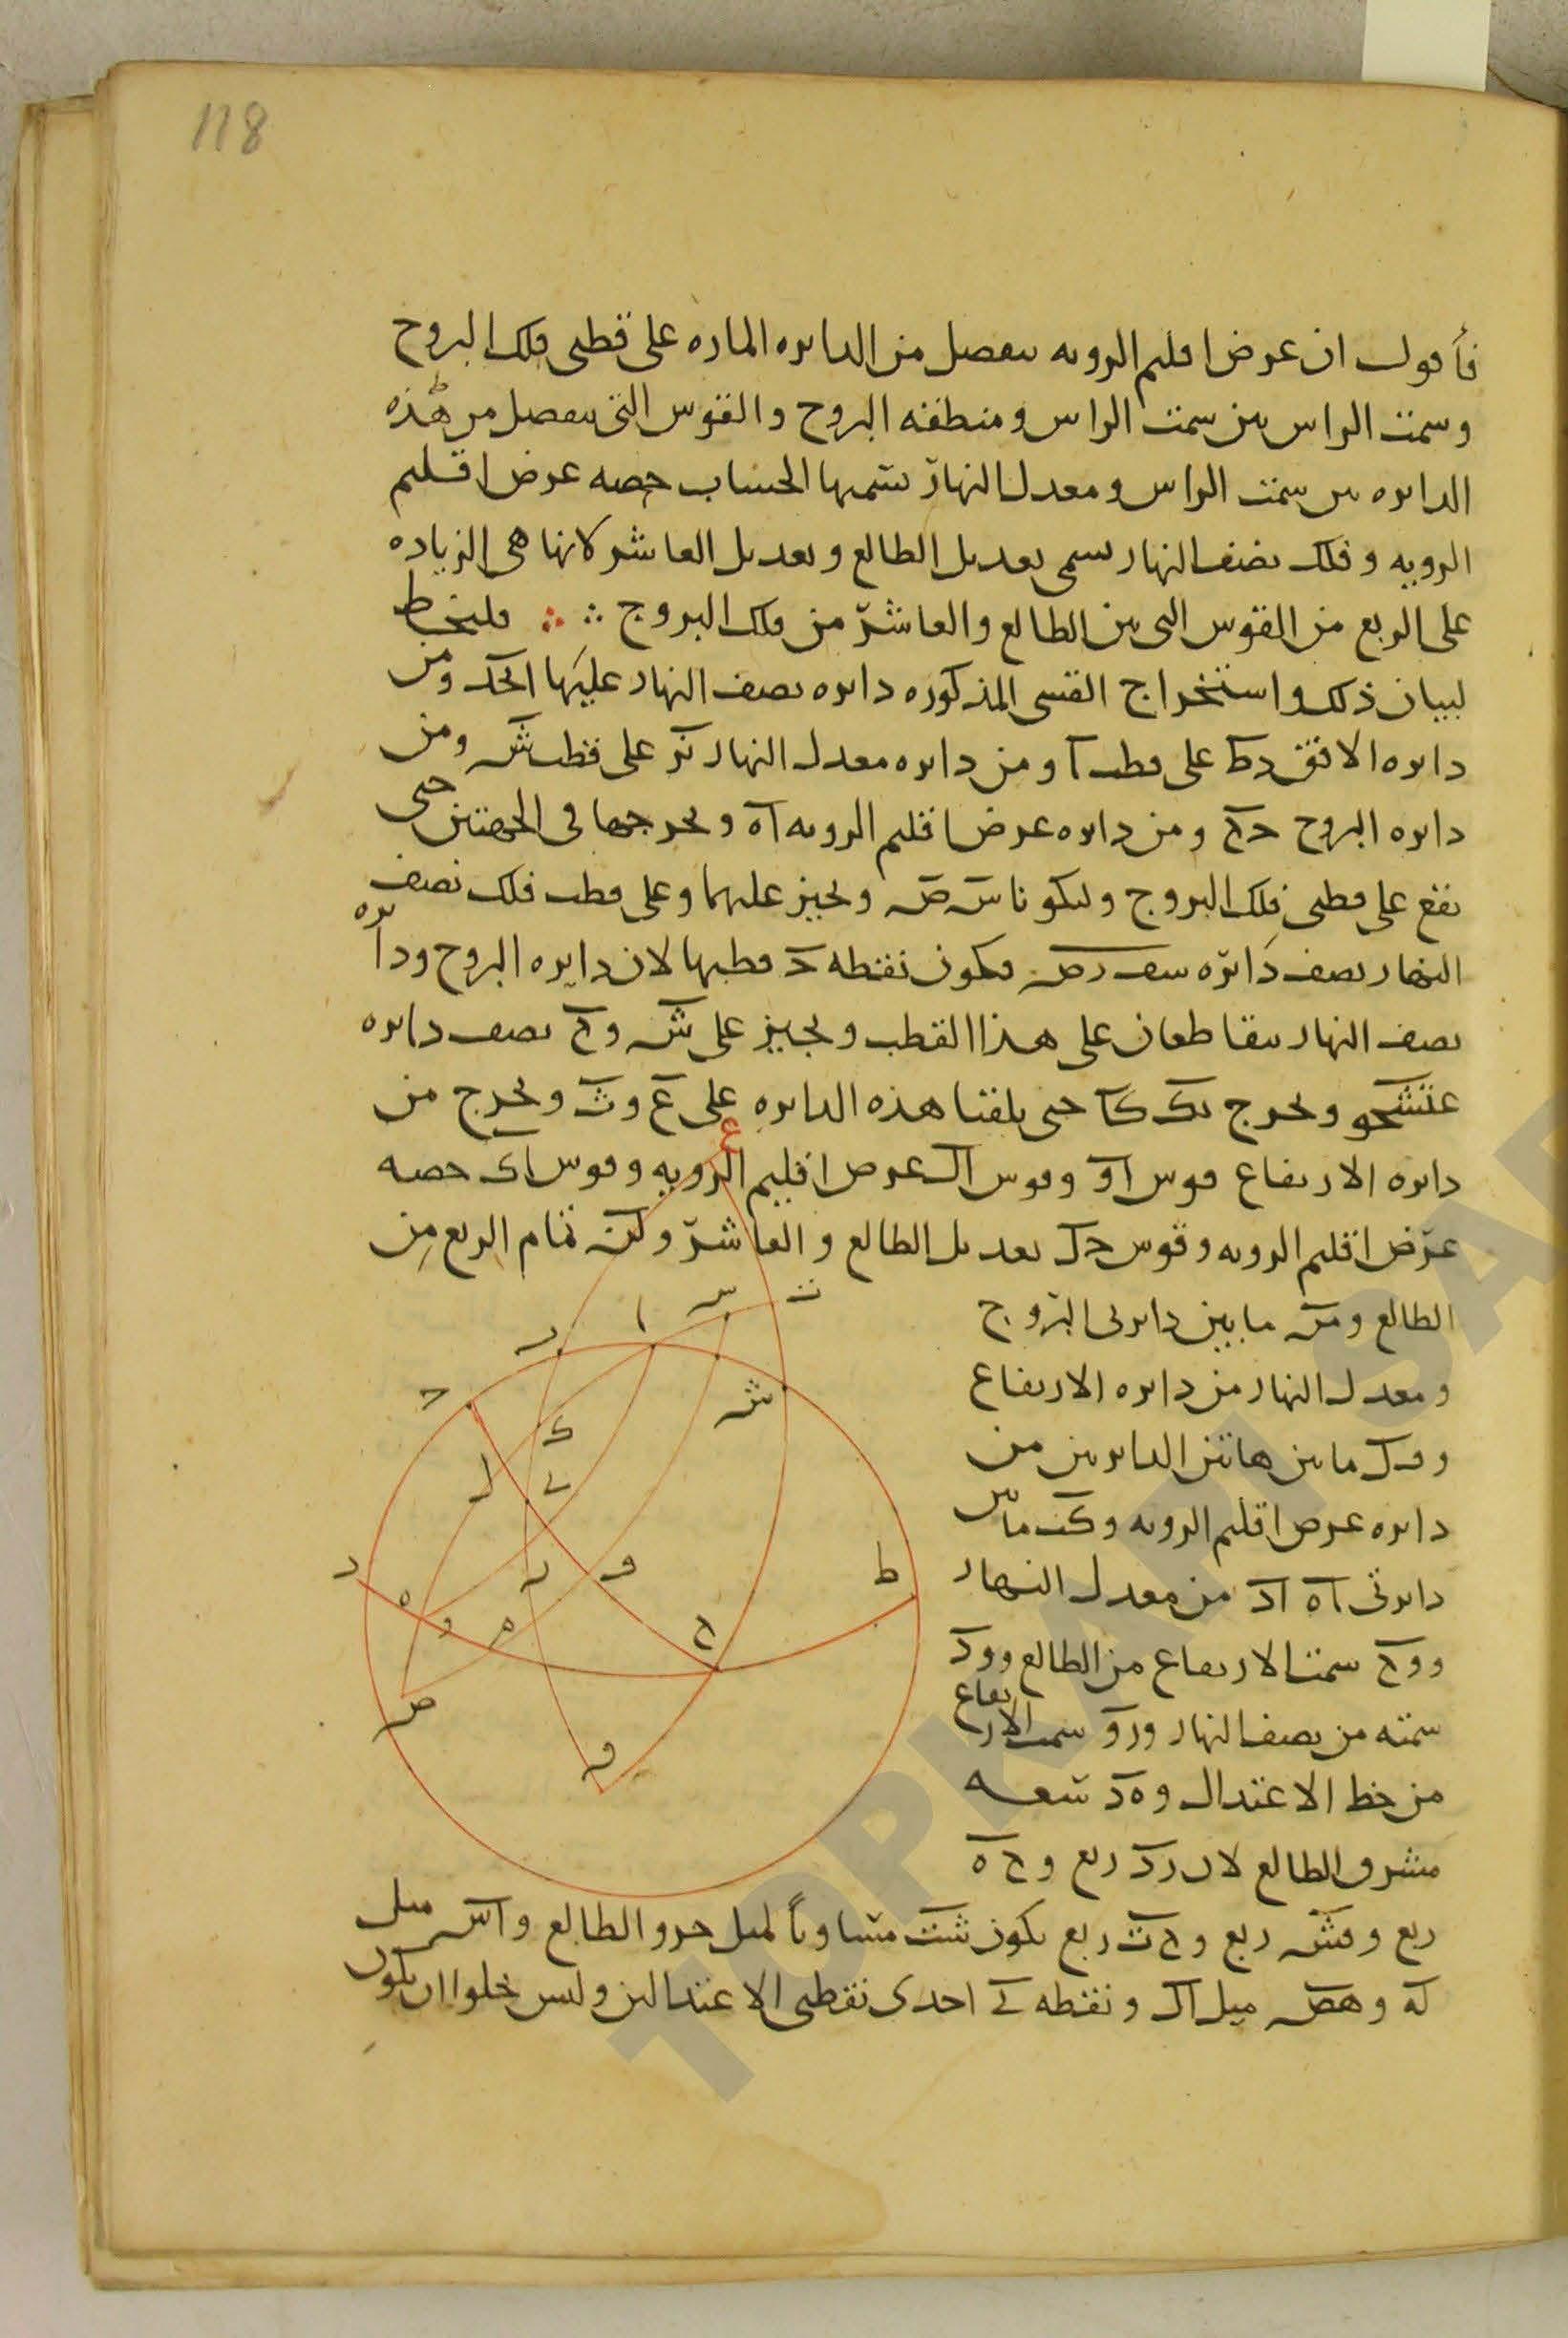 118
فأقول ان عرض اقليم الرويه ينفصل من الدايره الماره على قطبى فلك البروج
وسمت الراس بين سمت الراس ومنطقه البروج والقوس التى ينفصل من هذه
الدايره بين سمت الراس ومعدل النهار يسميها الحساب حصه عرض اقليم
الرويه وفلك نصف النهار يسمى تعديل الطالع وتعديل العاشر لانها هى الزياده
على الربع من القوس التى بين الطالع والعاشر من فلك البروج فليخط
لبيان ذلك واستخراج القسى المذكوره دايره نصف النهار عليها ومن
دايره الافق دط على قطب ا ومن دايره معدل النهار على قطب ش ومن
دايره البروج حح ومن دايره عرض اقليم الرويه اه ونخرجها فى الجهتين حتى
تقع على قطبى فلك البروج وليكونا س ص ونجيز عليهما وعلى قطب فلك نصف
النهار نصف دايره فيكون نقطه قطبها لان دايره البروج ودايره
نصف النهار يتقاطعان على هذا القطب ونجيز على ش وح نصف دايره
ونخرج حتى يلقيا هذه الدايره على ع وث ونخرج من
دايره الارتفاع قوس او وقوس ال عرض اقليم الرويه وقوس اك حصه
عرض اقليم الرويه وقوس حل تعديل الطالع والعاشر تمام الربع من
الطالع ما بين دايرتى البروج
ومعدل النهار من دايره الارتفاع
ما بين هاتين الدايرتين من
دايره عرض اقليم الرويه ما بين
دايرتى اه اد من معدل النهار
ووح سمت الارتفاع من الطالع وود
سمته من نصف النهار ورو سمت الارتفاع
من خط الاعتدال وه‍د سعه
مشرق الطالع لان رد ربع وح ه
ربع ربع وح ث ربع يكون شث مساويا لميل جزو الطالع واس ميل
له وهص ميل ال ونقطه احدى نقطتى الاعتدالين وليس خلوا ان يكون
ع
ث
س
ا
ر
ح
ش
ك
ل
ط
د
ه
و
م
ح
ص
ف